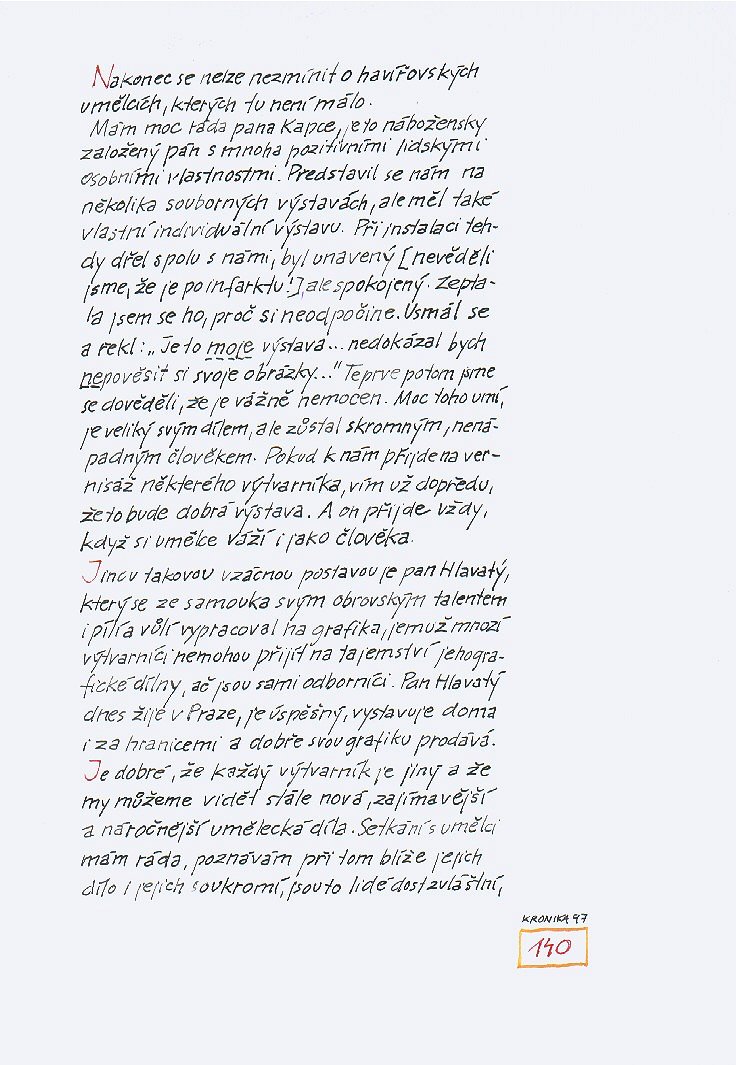 Nakonec se nelze nezmínit o havířovských
umělcích, kterých tu není málo.
Mám moc ráda pana Kapce, je to nábožensky
založený pán s mnoha pozitivními lidskými
osobními vlastnostmi. Představil se nám na
několika souborných výstavách, ale měl také
vlastní individuální výstavu. Při instalaci teh-
dy dřel spolu s námi, byl unavený [nevěděli
jsme, že je po infarktu!] ale spokojený. Zepta-
la jsem se ho, proč si neodpočine. Usmál se
a řekl: „Je to moje výstava... nedokázal bych
nepověsit si svoje obrázky..." Teprve potom jsme
se dověděli, že je vážně nemocen. Moc toho umí,
je veliký svým dílem, ale zůstal skromným, nená-
padným člověkem. Pokud k nám přijde na ver-
nisáž některého výtvarníka, vím už dopředu,
že to bude dobrá výstava. A on přijde vždy,
když si umělce váží i jako člověka.
Jinou takovou vzácnou postavou je pan Hlavatý,
který se ze samouka svým obrovským talentem
i pílí a vůlí vypracoval na grafika, jemuž mnozí
výtvarníci nemohou přijít na tajemství jeho gra-
fické dílny, ač jsou sami odborníci. Pan Hlavatý
dnes žije v Praze, je úspěšný, vystavuje doma
i za hranicemi a dobře svou grafiku prodává.
Je dobré, že každý výtvarník je jiný a že
my můžeme vidět stále nová, zajímavější
a náročnější umělecká díla. Setkání s umělci
mám ráda, poznávám při tom blíže jejich
dílo i jejich soukromí, jsou to lidé dost zvláštní,
KRONIKA 97
140